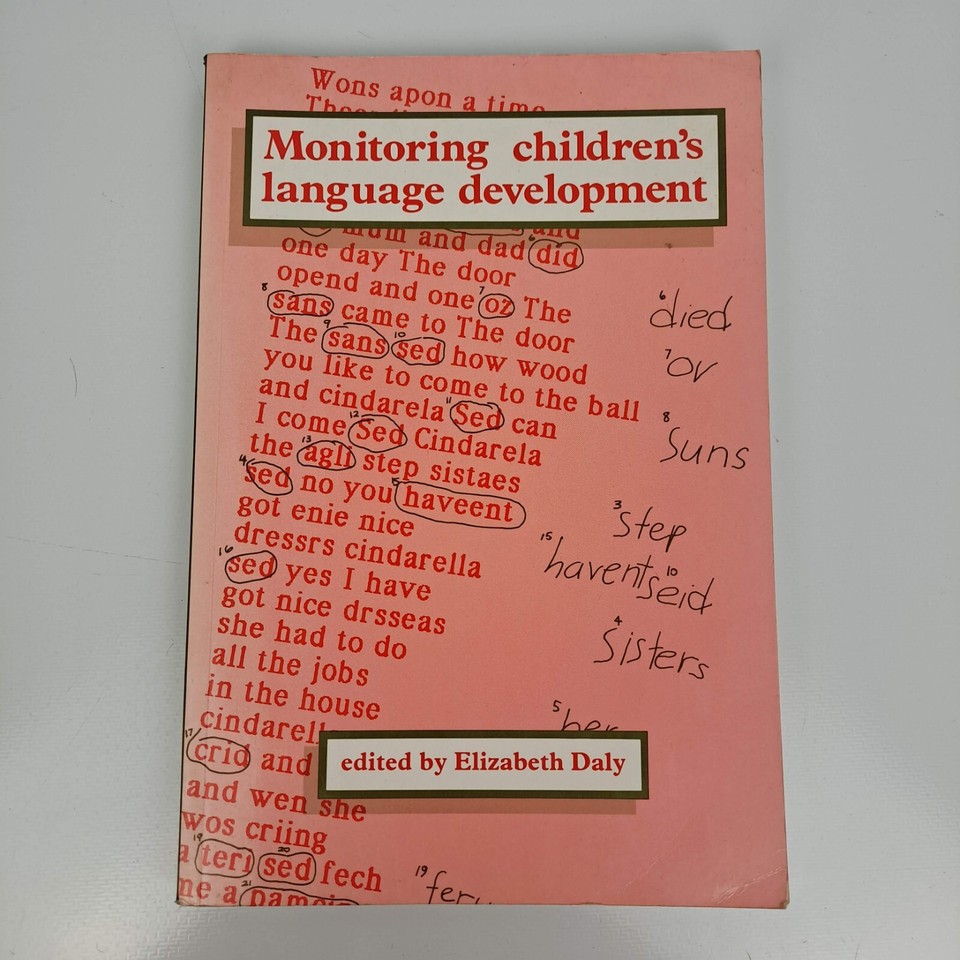 Wons apon a time
Monitoring children's
language development
mum and dad did
one day The door
opend and one oz The
sans came to The door
The sans sed how wood
you like to come to the ball
and cindarela Sed can
I come Sed Cindarela
the agli step sistaes
sed no you haveent
got enie nice
dressrs cindarella
sed yes I have
got nice drsseas
she had to do
all the jobs
in the house
cindarell
crid and
and wen she
wos criing
a teri sed fech
me a
6 died
7 ov
8 suns
3 step
15 havent
10 seid
4 sisters
5 her
edited by Elizabeth Daly
19